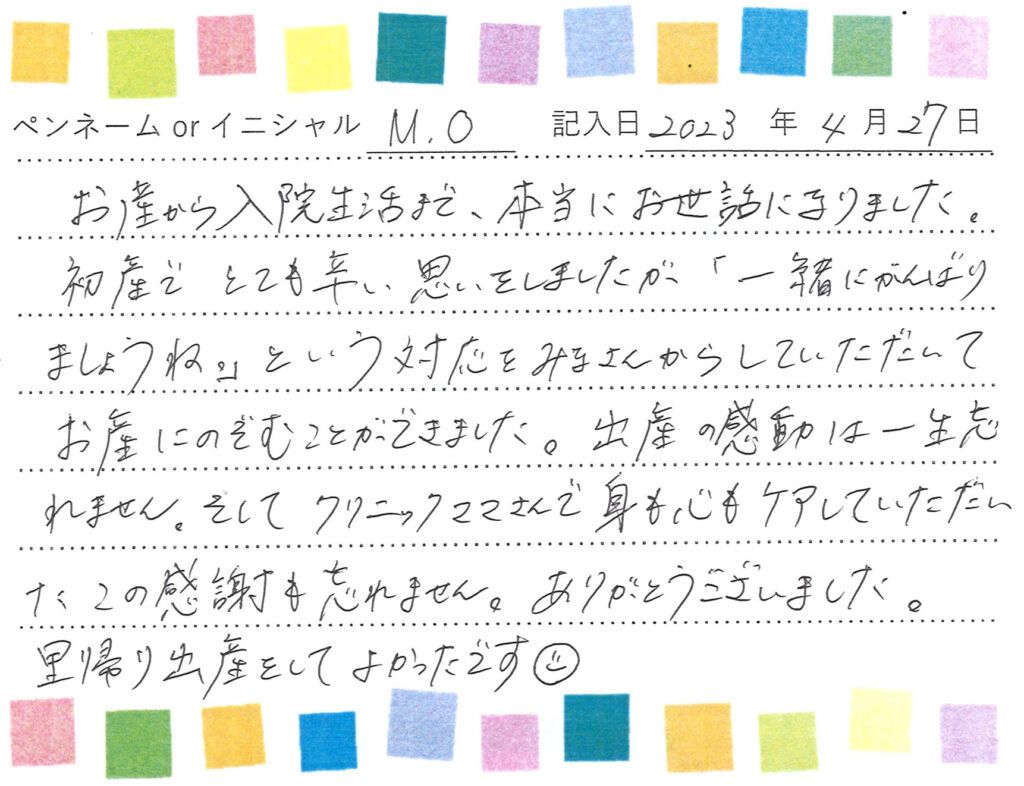 ペンネーム or イニシャル M.O 記入日 2023 年 4 月 27 日
お産から入院生活まで、本当にお世話になりました。
初産で とても辛い思いをしましたが「一緒にがんばり
ましょうね。」という対応をみなさんからしていただいて
お産にのぞむことができました。出産の感動は一生忘
れません。そして クリニックママさんで身も心もケアしていただい
たこの感謝も忘れません。ありがとうございました。
里帰り出産をしてよかったです☺